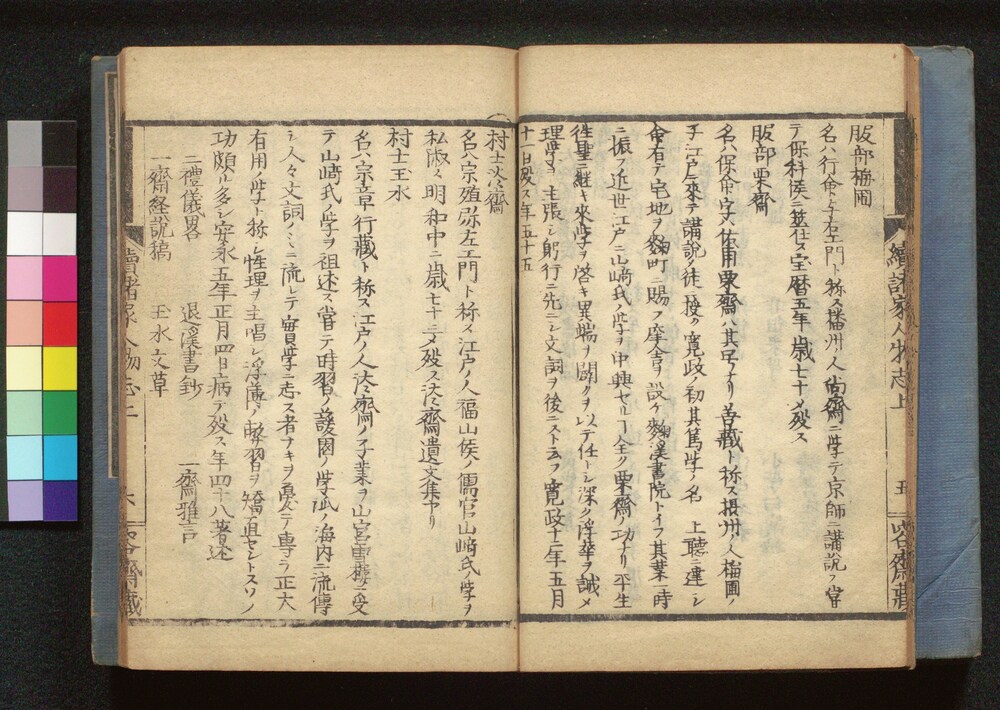 服部梅圃
名ハ行命字右エ門ト称ス播州ノ人尚齋ニ学テ京師ニ講説ス嘗
テ保科侯ニ筮仕ス宝暦五年歳七十ニメ歿ス
服部栗齋
名ハ保命字ハ佑甫栗齋ハ其号ナリ善藏ト称ス摂州ノ人梅圃ノ
子江戸ニ來テ講説シ徒ニ授ク寛政ノ初其篤学ノ名 上聴ニ達シ
命有テ宅地ヲ麹町ニ賜フ庠舎ヲ設ケ麹溪書院トイフ其業一時
ニ振フ近世江戸ニ山﨑氏ノ学ヲ中興セルヿ全ク栗齋ノ功ナリ平生
往聖ニ継キ來学ヲ啓キ異端ヲ闢クヲ以テ任トシ深ク浮華ヲ誡メ
理学ヲ主張シ躬行ニ先ニシ文詞ヲ後ニスト云フ寛政十二年五月
十一日歿ス年五十五
續諸家人物志上 五
村士淡齋
名ハ宗殖弥左エ門ト称ス江戸ノ人福山侯ノ儒官山﨑氏ノ学ヲ
私淑ス明和中ニ歳七十ニメ歿ス淡齋遺文集アリ
村士玉水
名ハ宗章行藏ト称ス江戸ノ人淡齋ノ子業ヲ山宮雪樓ニ受
テ山﨑氏ノ学ヲ祖述ス嘗テ時習ノ蘐園ノ学武ノ海内ニ流傳
シ人々文詞ノミニ流レテ實学ニ志ス者ナキヲ患ヘテ專ラ正大
有用ノ学ト称シ性理ヲ主唱シ浮薄ノ弊習ヲ矯直セントスソノ
功頗ル多シ安永五年正月四日病テ歿ス年四十八著述
二禮儀畧 退溪書鈔 一齋雅言
一齋経説稿 玉水文草
續諸家人物志上 六